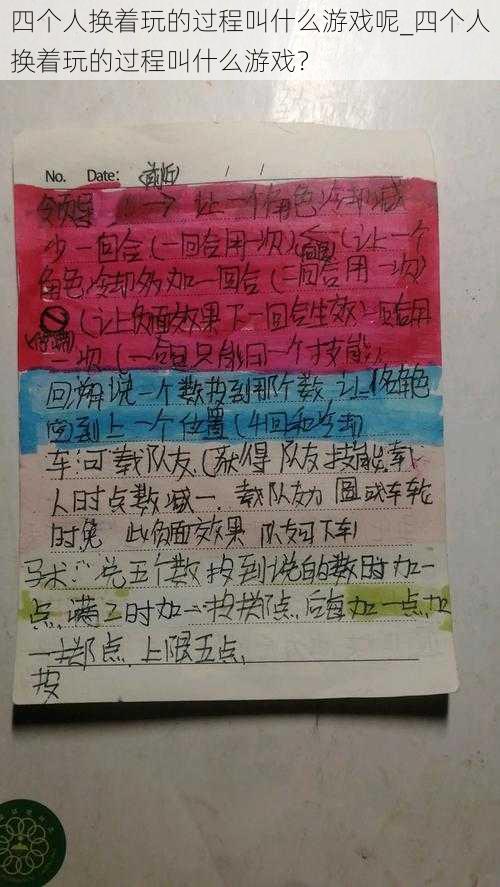 四个人换着玩的过程叫什么游戏呢_四个人
换着玩的过程叫什么游戏?
No. Date: / /
领导 → 让一个角色冷却减
少一回合(一回合用一次) (让一个
角色冷却多加一回合(三回合用一次)
(让负面效果下一回合生效)一回合用
一次.(一回合只能用一个技能)
回溯:说一个数投到那个数让角色
回到上一个位置(4回合冷却)
车:可载队友.(获得队友技能,载
人时点数减一.载队友为圆或车轮
时免 此负面效果 队友可下车)
马术:说五个数 投到说的数时加一
点,满2时加一掷点,后每加一点,加
一掷点,上限五点,
投